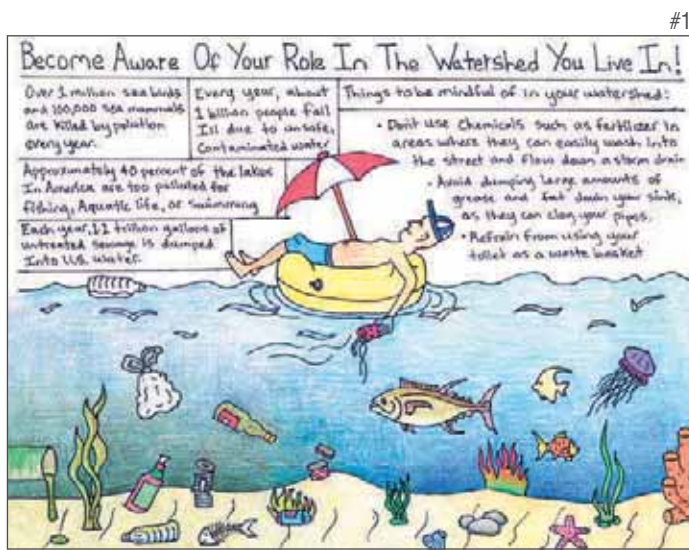 #1
Become Aware Of Your Role In The Watershed You Live In!
Over 1 million sea birds
and 100,000 sea mammals
are killed by polution
every year.
Every year, about
1 billion people fall
Ill due to unsafe,
Contaminated water
Approximately 40 percent of the lakes
In America are too polluted for
fishing, Aquatic life, or swimming
Each year, 1.2 trillion gallons of
untreated sewage is dumped
Into U.S. water.
Things to be mindful of in your watershed:
• Don't use Chemicals such as fertlizer in
areas where they can easily wash into
the street and flow down a storm drain
• Avoid dumping large amounts of
grease and fat down your sink,
as they can clog your pipes.
• Refrain from using your
toilet as a waste basket